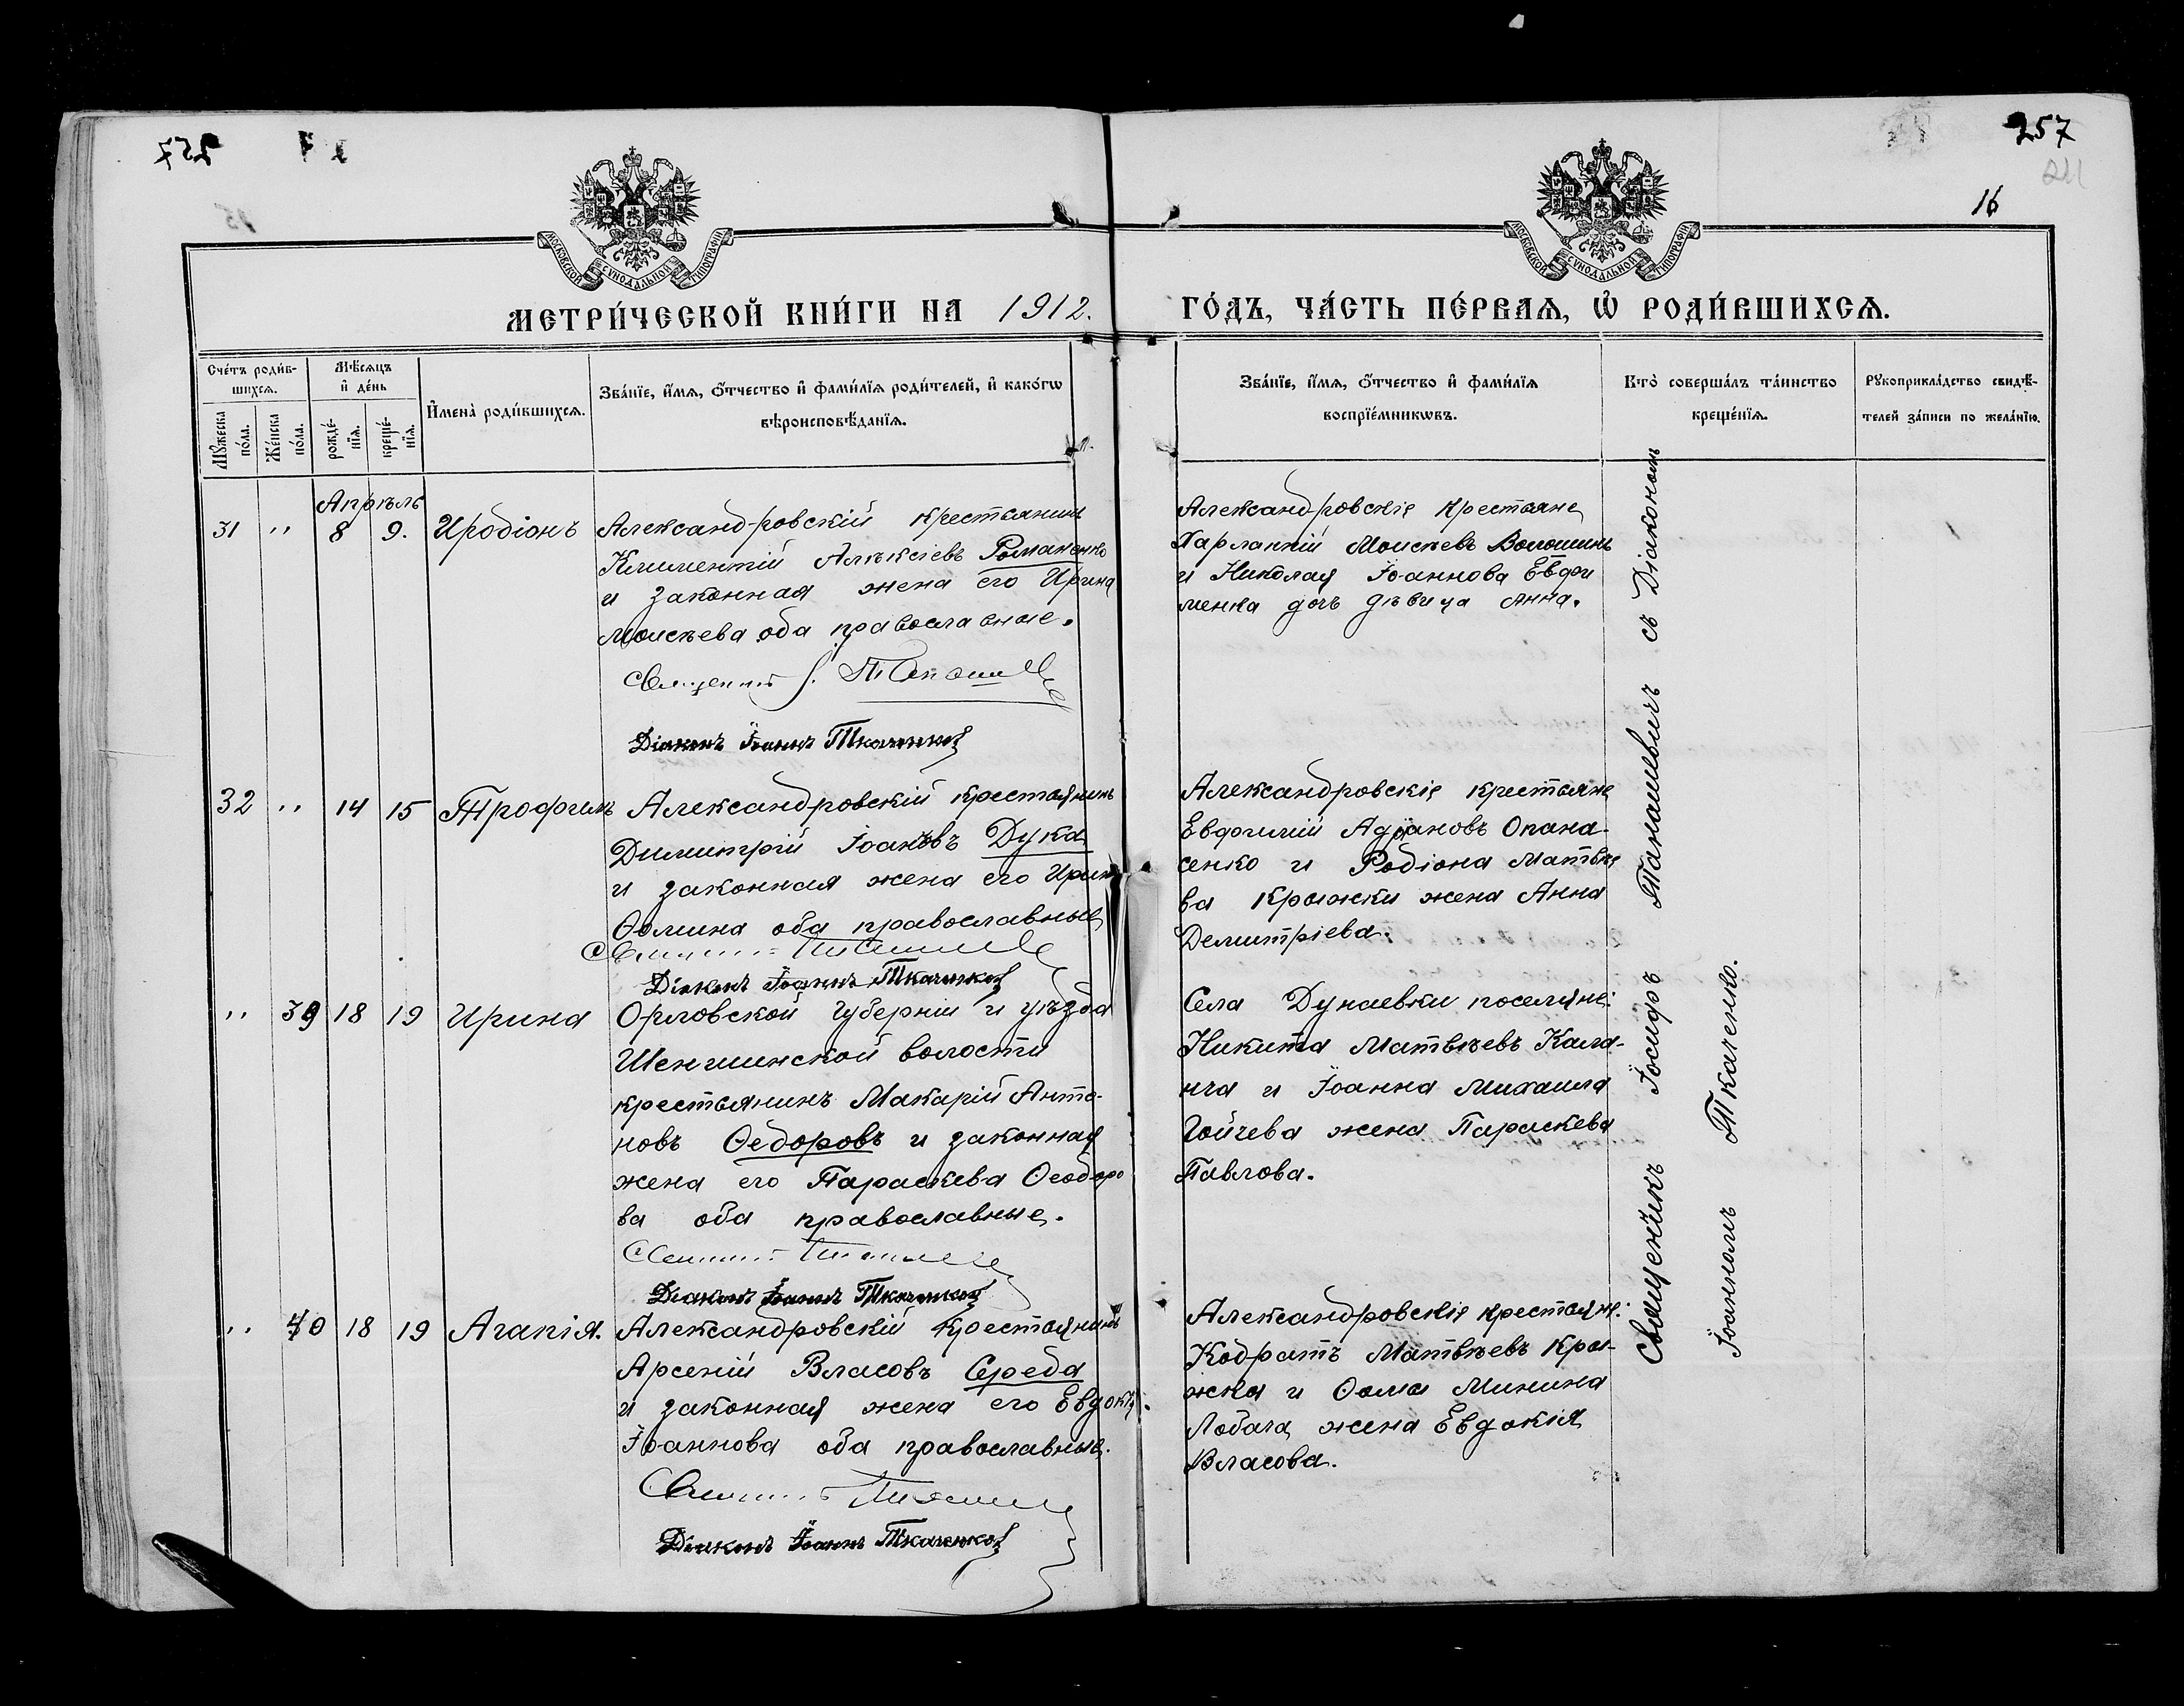 257
211
16
МОСКОВСКОЙ СѴНОДАЛЬНОЙ ТИПОГРАФІИ
МОСКОВСКОЙ СѴНОДАЛЬНОЙ ТИПОГРАФІИ
МЕТРИ́ЧЕСКОЙ КНИ́ГИ НА 1912. ГО́ДЪ, ЧА́СТЬ ПЕ́РВАѦ, Ѡ҆ РОДИ́ВШИХСѦ.
Сче́тъ роди́в-
шихсѧ.
Мꙋ́жеска по́ла.
Же́нска по́ла.
Мѣ́сѧцъ
и҆ де́нь
рожде́-
нїѧ.
креще́-
нїѧ.
И҆мена̀ роди́вшихсѧ.
Зва́нїе, и҆́мѧ, ѻ҆́тчество и҆ фами́лїѧ роди́телей, и҆ како́гѡ
вѣроисповѣ́данїѧ.
Зва́нїе, и҆́мѧ, ѻ҆́тчество и҆ фами́лїѧ
воспрїе́мникѡвъ.
Кто̀ соверша́лъ та́инство
креще́нїѧ.
Рꙋкоприкла́дство свидѣ́-
телей за́писи по жела́нїю.
Апрѣль
31 " 8 9. Иродіонъ
Александровскій крестьянинъ
Климентій Алексіевъ Романенко
и законная жена его Ирина
Моисѣева оба православные.
Священникъ І.
Діаконъ Іоаннъ Ткаченко
Александровскіе крестьяне
Харлампій Моисѣевъ Волошинъ
и Николая Іоаннова Евфи
менка дочь дѣвица Анна.
32 " 14 15 Трофимъ
Александровскій крестьянинъ
Димитрій Іоанновъ Дука
и законная жена его Ирина
Ѳомина оба православные
Діаконъ Іоаннъ Ткаченко
Александровскіе крестьяне
Евфимій Адріановъ Опана-
сенко и Родіона Матвѣе
ва Крыжки жена Анна
Демитріева.
" 39 18 19 Ирина
Орловской губерніи и уѣзда
Шеншинской волости
крестьянинъ Макарій Анто-
новъ Ѳедоровъ и законная
жена его Параскева Ѳеодоро
ва оба православные.
Діаконъ Іоаннъ Ткаченко
Села Дунаевки поселяне:
Никита Матвѣевъ Кала-
нча и Іоанна Михаила
Гойчева жена Параскева
Павлова.
" 40 18 19 Агапія.
Александровскій крестьянинъ
Арсеній Власовъ Середа
и законная жена его Евдокія
Іоаннова оба православные.
Діаконъ Іоаннъ Ткаченко
Александровскіе крестьяне:
Кодратъ Матвѣевъ Кры-
жка и Ѳома Минина
Лобача жена Евдокія
Власова.
Священникъ Іосифъ Танашевичъ съ Діакономъ
Іоанномъ Ткаченко.